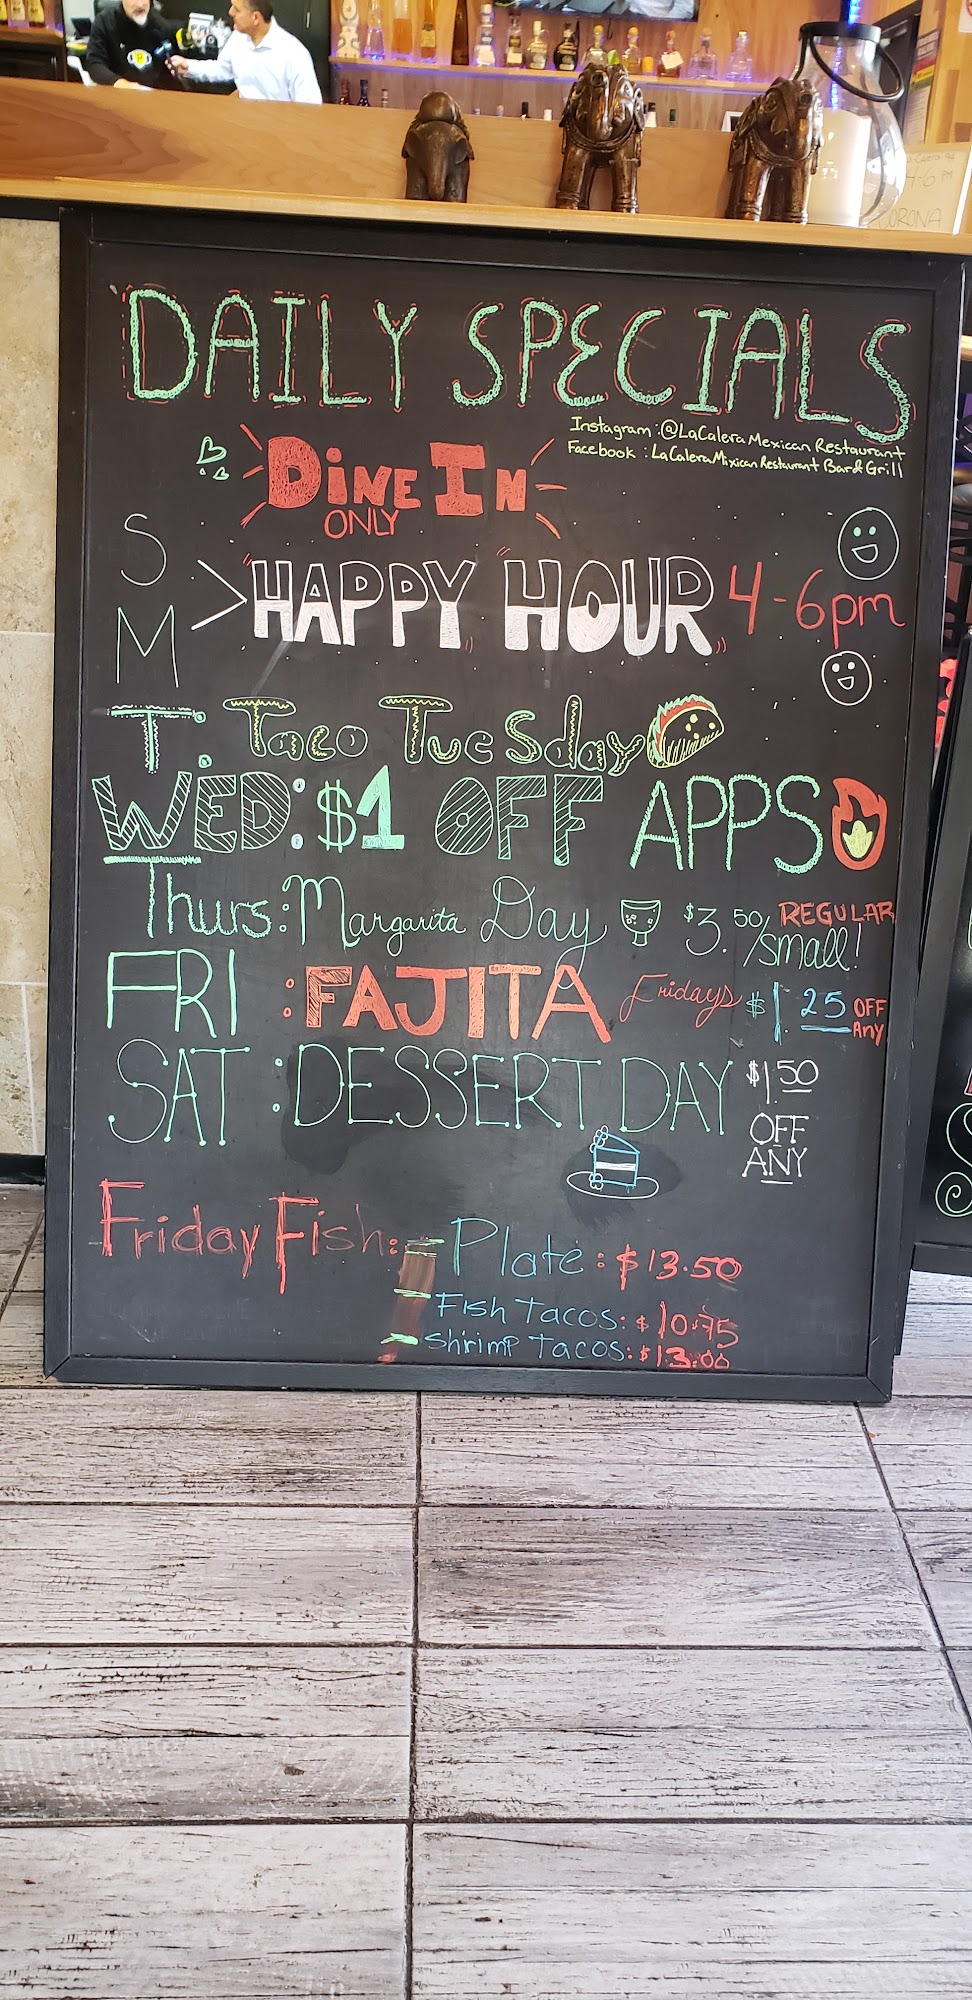 DAILY SPECIALS
Instagram: @LaCalera Mexican Restaurant
Facebook: LaCalera Mixican Restaurant Bar & Grill
DINE IN
ONLY
S
M
> "HAPPY HOUR" 4-6pm
T: Taco Tuesday
WED: $1 OFF APPS
Thurs: Margarita Day $3.50/ REGULAR
small!
FRI: FAJITA Fridays $1.25 OFF
Any
SAT: DESSERT DAY $1.50
OFF
ANY
Friday Fish: - Plate: $13.50
- Fish Tacos: $10.75
- Shrimp Tacos: $13.00
CORONA